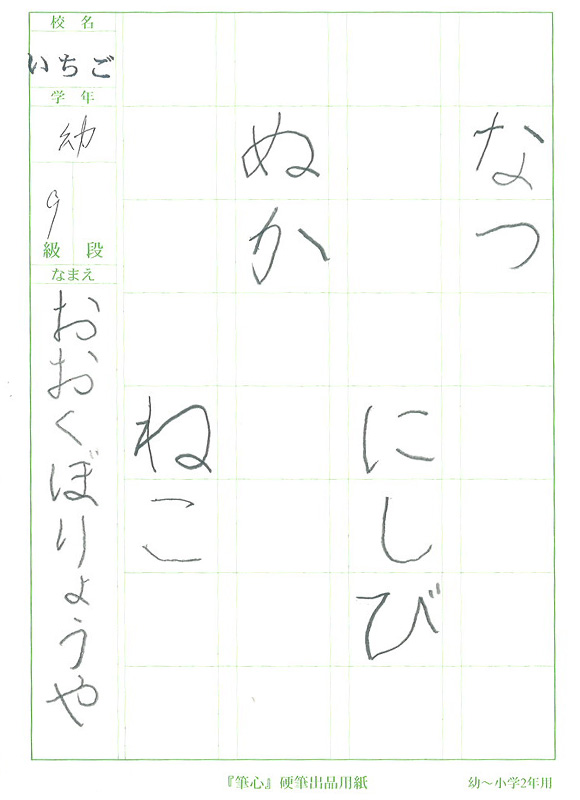 なつ
にしび
ぬか
ねこ
校名
いちご
学年
幼
9
級 段
なまえ
おおくぼりょうや
『筆心』硬筆出品用紙
幼～小学2年用